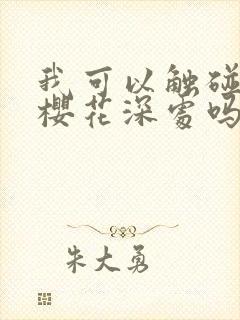 我可以触碰
樱花深处吗
朱大勇